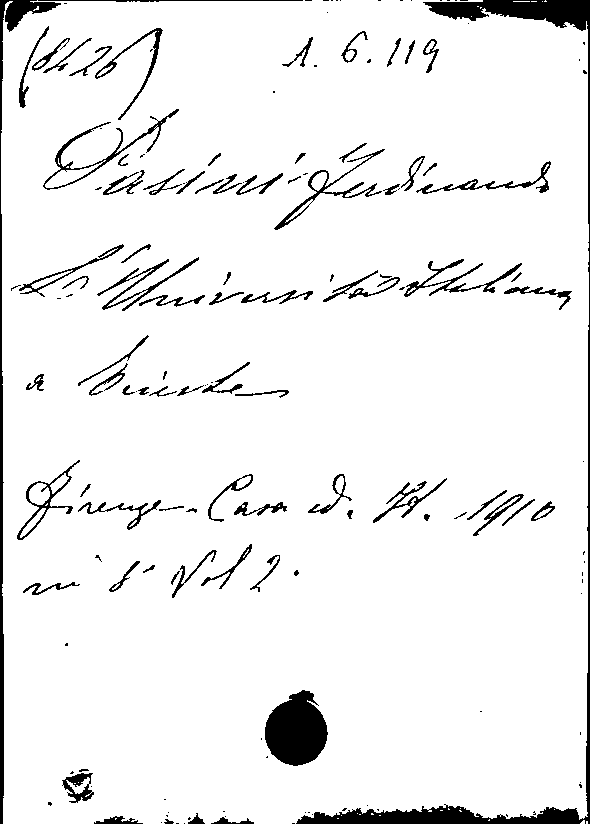 (8426) A. 6. 119
Pasini Ferdinando
L'Università Italiana
a Trieste
Firenze. Casa ed. It. 1910
in 8° Vol 2.